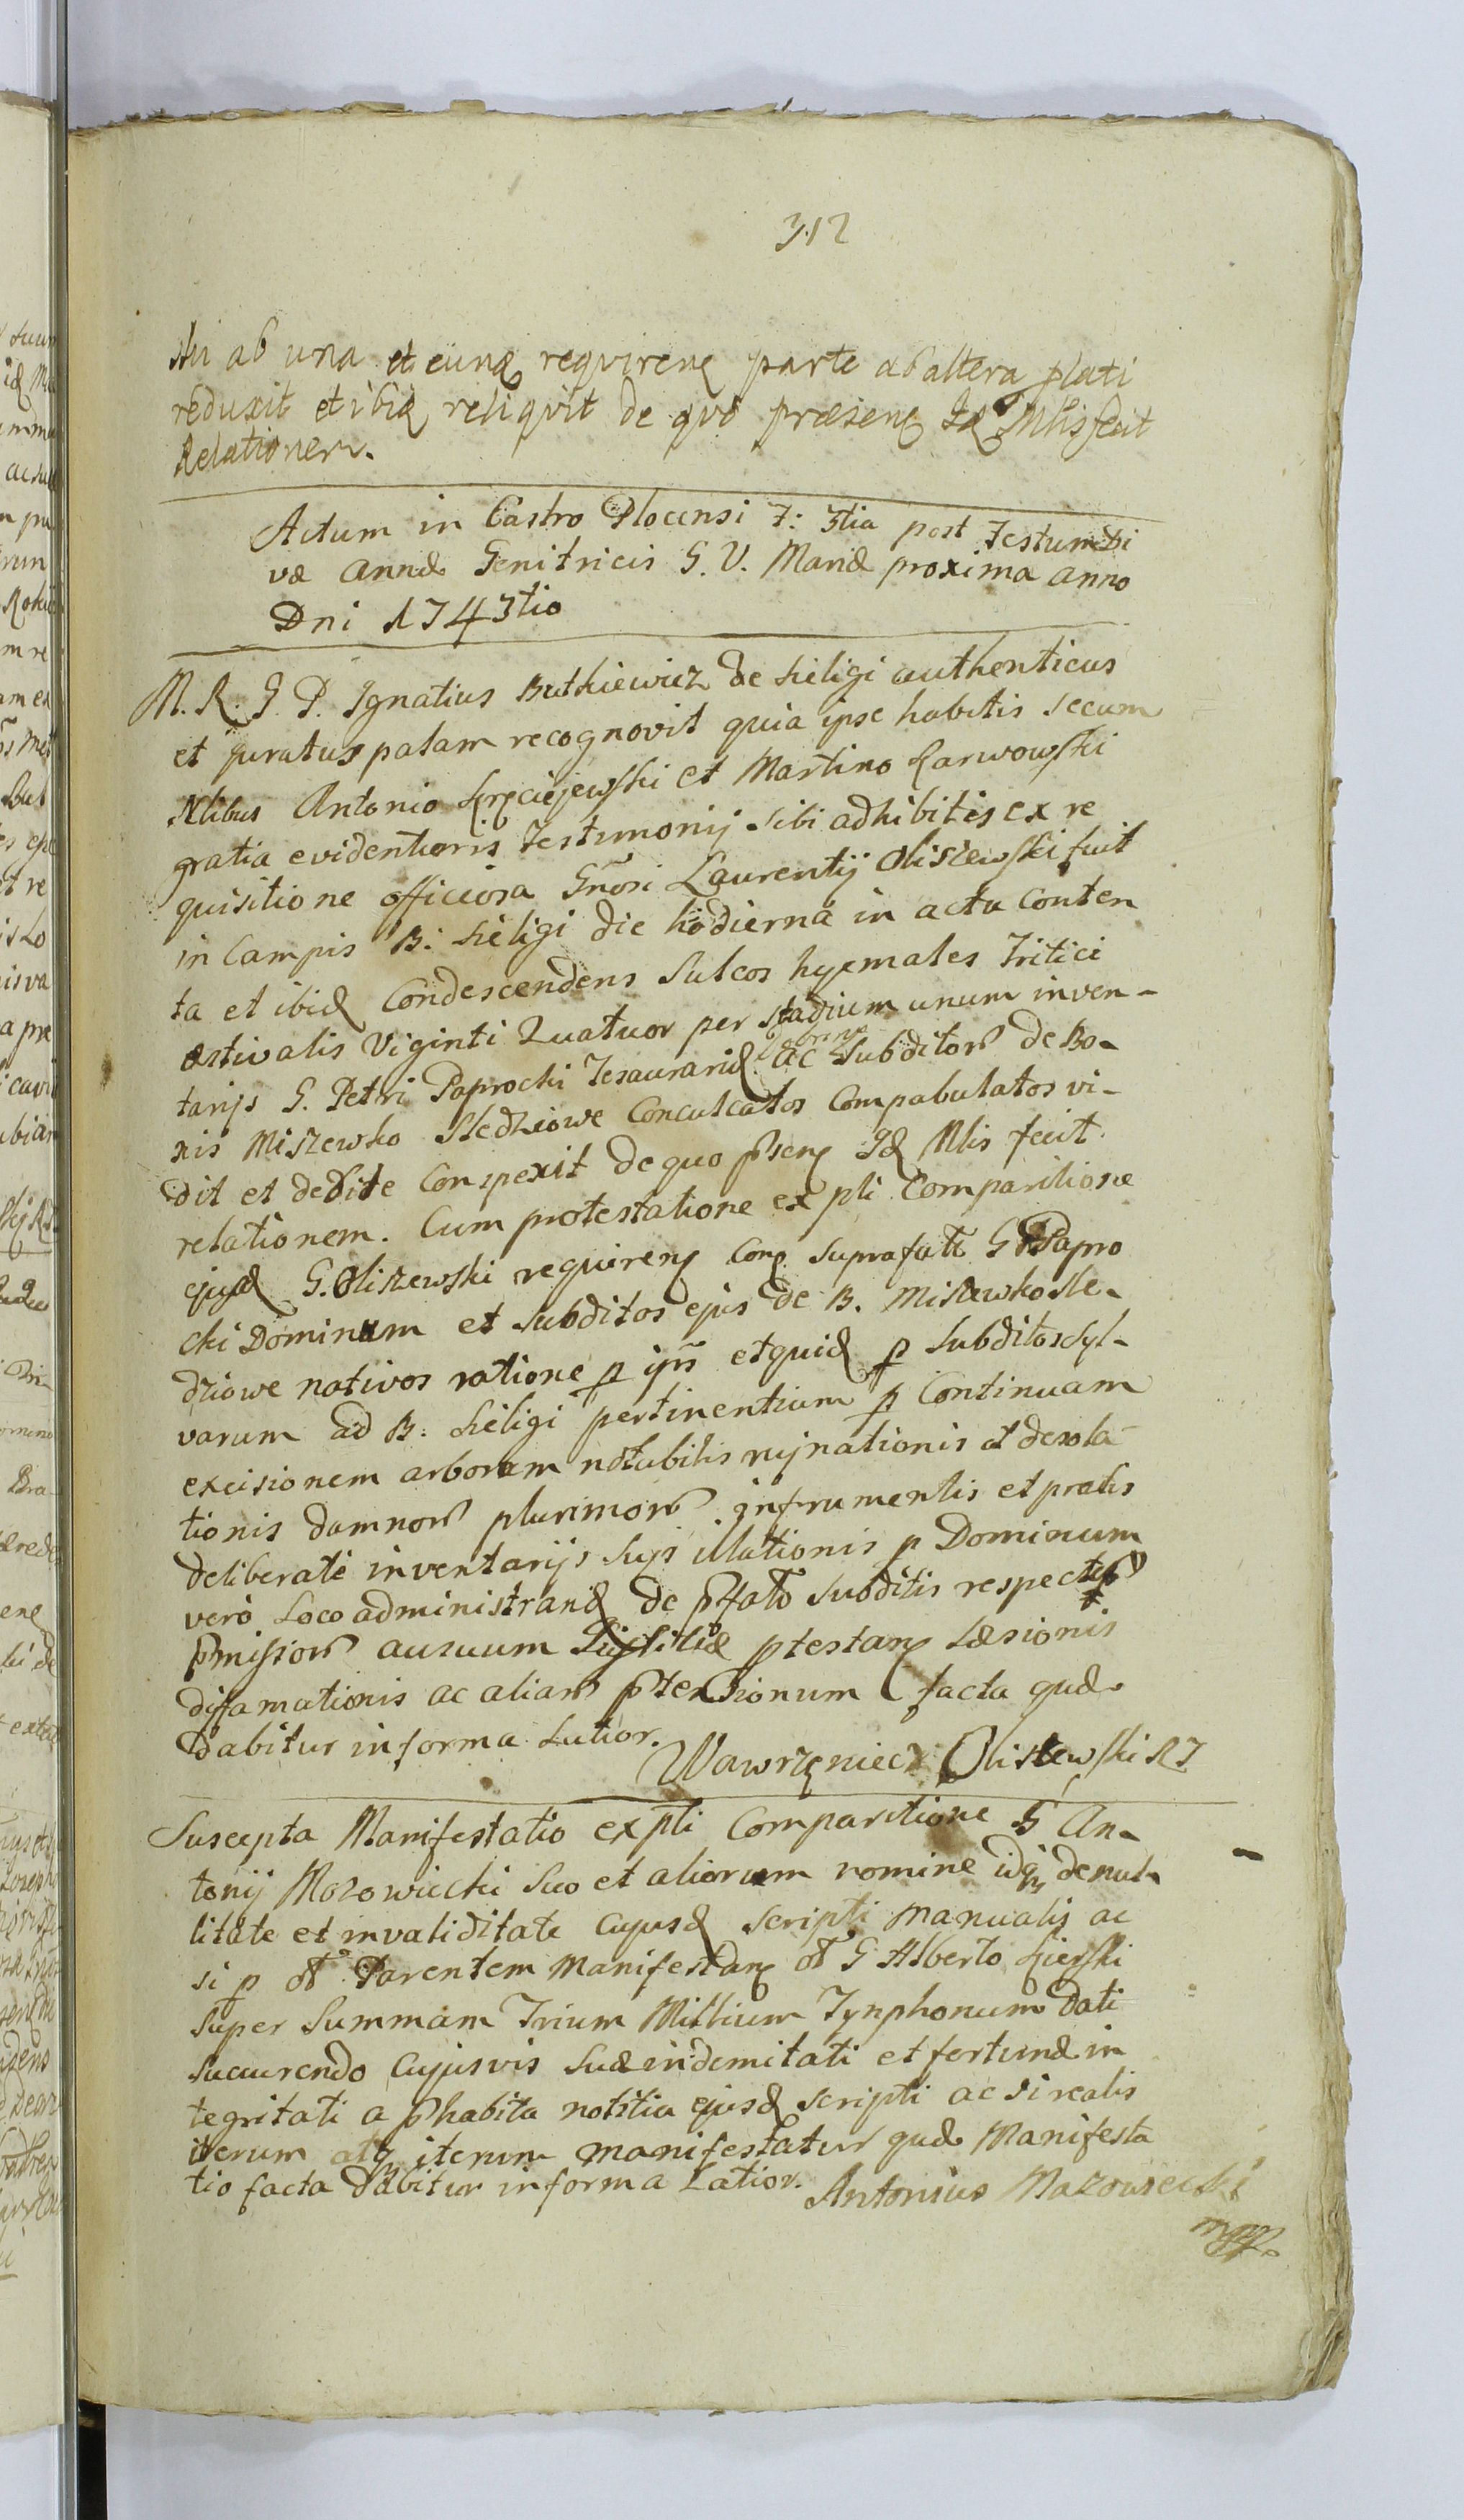 312
ski ab una et eund requirenę parte ab altera plati
reduxit et ibid reliqvit de qvo præsenę Id Mlis fecit
Relationem.
Actum in Castro Plocensi F: 3tia post Festum Di
væ Annæ Genitricis G. V. Mariæ proxima Anno
Dni 1743tio
M. R. J. P. Ignatius Rutkiewicz de Seligi authenticus
et juratus palam recognovit quia ipse habitis secum
Nlibus Antonio Kręciejewski et Martino Karwowski
gratia evidentioris Testimonij sibi adhibitis ex re
quisitione officiosa Gnosi Laurentij Oliszewski fuit
in Campis B: Seligi die hodierna in actu Conten
ta et ibid Condescendens Sulcos hyemales Tritici
æstivalis Viginti Quatuor per stadium unum inven-
tarijs G. Petri Paprocki Tesaurarid ac Subditorum de Bo-
nis Miszewko Stedziowe Conculcatos Compabulatos vi-
dit et debite Conspexit de quo psenę Id Mlis fecit
relationem. Cum protestatione ex pti Comparitione
ejusd G. Oliszewski requirenę conę suprafatū G Papro
cki Dominum et subditos ejus de B. Miszewko Ste-
dziowe nativos ratione p ipm etquid p subditos syl-
varum ad B: Seligi pertinentium p Continuam
excisionem arborum notabilis rujnationis et desola-
tionis damnorum plurimorum in frumentis et pratis
deliberatè inventarijs sujs illationis p Dominum
verò Loco administrand de pfato subditis respectu
pmissorum ausuum Justitiæ ptestanę Læsionis
diffamationis ac aliarum ptensionum facta quæ
dabitur in forma Latior.
Wawrzęniec Oliszewski RJ
Suscepta Manifestatio ex pti Comparitione G An-
tonij Mazowiecki suo et aliorum nomine idq de nul-
litate et invaliditate Cujusd scripti manualis ac
si p olt Parentem Manifestanę olt G Alberto Kierski
super Summam Trium Millium Tynphonum dati
sucurendo Cujusvis suæ indemnitati et fortunæ in
tegritati a phabita notitia ejusd scripti ac si realis
iterum atq iterum manifestatur quæ Manifesta
tio facta dabitur in forma Latior.
Antonius Mazowiecki
mpp.